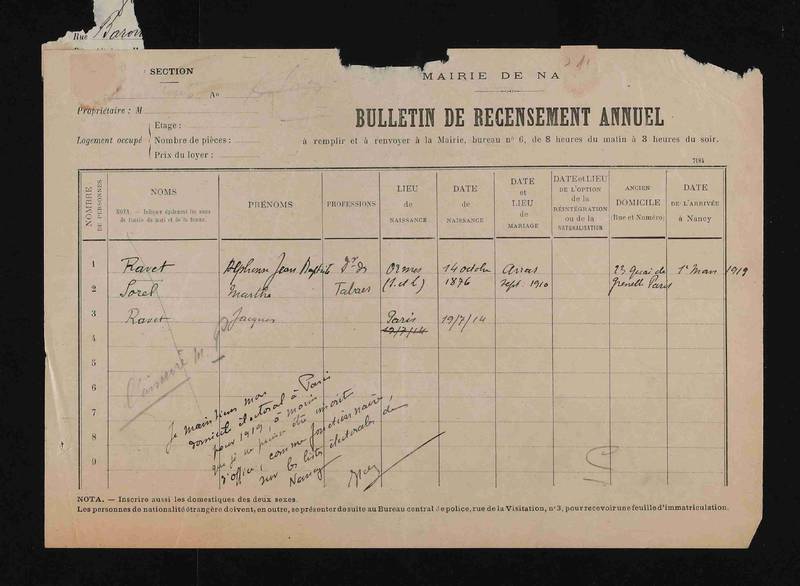 Rue Baron
SECTION
MAIRIE DE NA
Au
Propriétaire : M
BULLETIN DE RECENSEMENT ANNUEL
Logement occupé
Etage :
Nombre de pièces :
Prix du loyer :
à remplir et à renvoyer à la Mairie, bureau n° 6, de 8 heures du matin à 3 heures du soir.
7184
NOMBRE DE PERSONNES
NOMS
NOTA. — Indiquer également les noms de famille du mari et de la femme.
PRÉNOMS
PROFESSIONS
LIEU de NAISSANCE
DATE de NAISSANCE
DATE et LIEU de MARIAGE
DATE et LIEU DE L'OPTION de la RÉINTÉGRATION ou de la NATURALISATION
ANCIEN DOMICILE (Rue et Numéro)
DATE DE L'ARRIVÉE à Nancy
1 Ravet Alphonse Jean Baptiste Dr des Ormes 14 octobre Arras 23 quai de 1er Mars 1919
2 Sorel Marthe Tabacs 1876 Sept. 1910 Grenelle Paris
3 Ravet Jacques Paris 19/7/14
19/7/14
4
5
6
7
8
9
Je maintiens mon
domicile électoral à Paris
pour 1919, à moins
que je ne puisse être inscrit
d'office, comme fonctionnaire,
sur les listes électorales de
Nancy
NOTA. — Inscrire aussi les domestiques des deux sexes.
Les personnes de nationalité étrangère doivent, en outre, se présenter de suite au Bureau central de police, rue de la Visitation, n° 3, pour recevoir une feuille d'immatriculation.